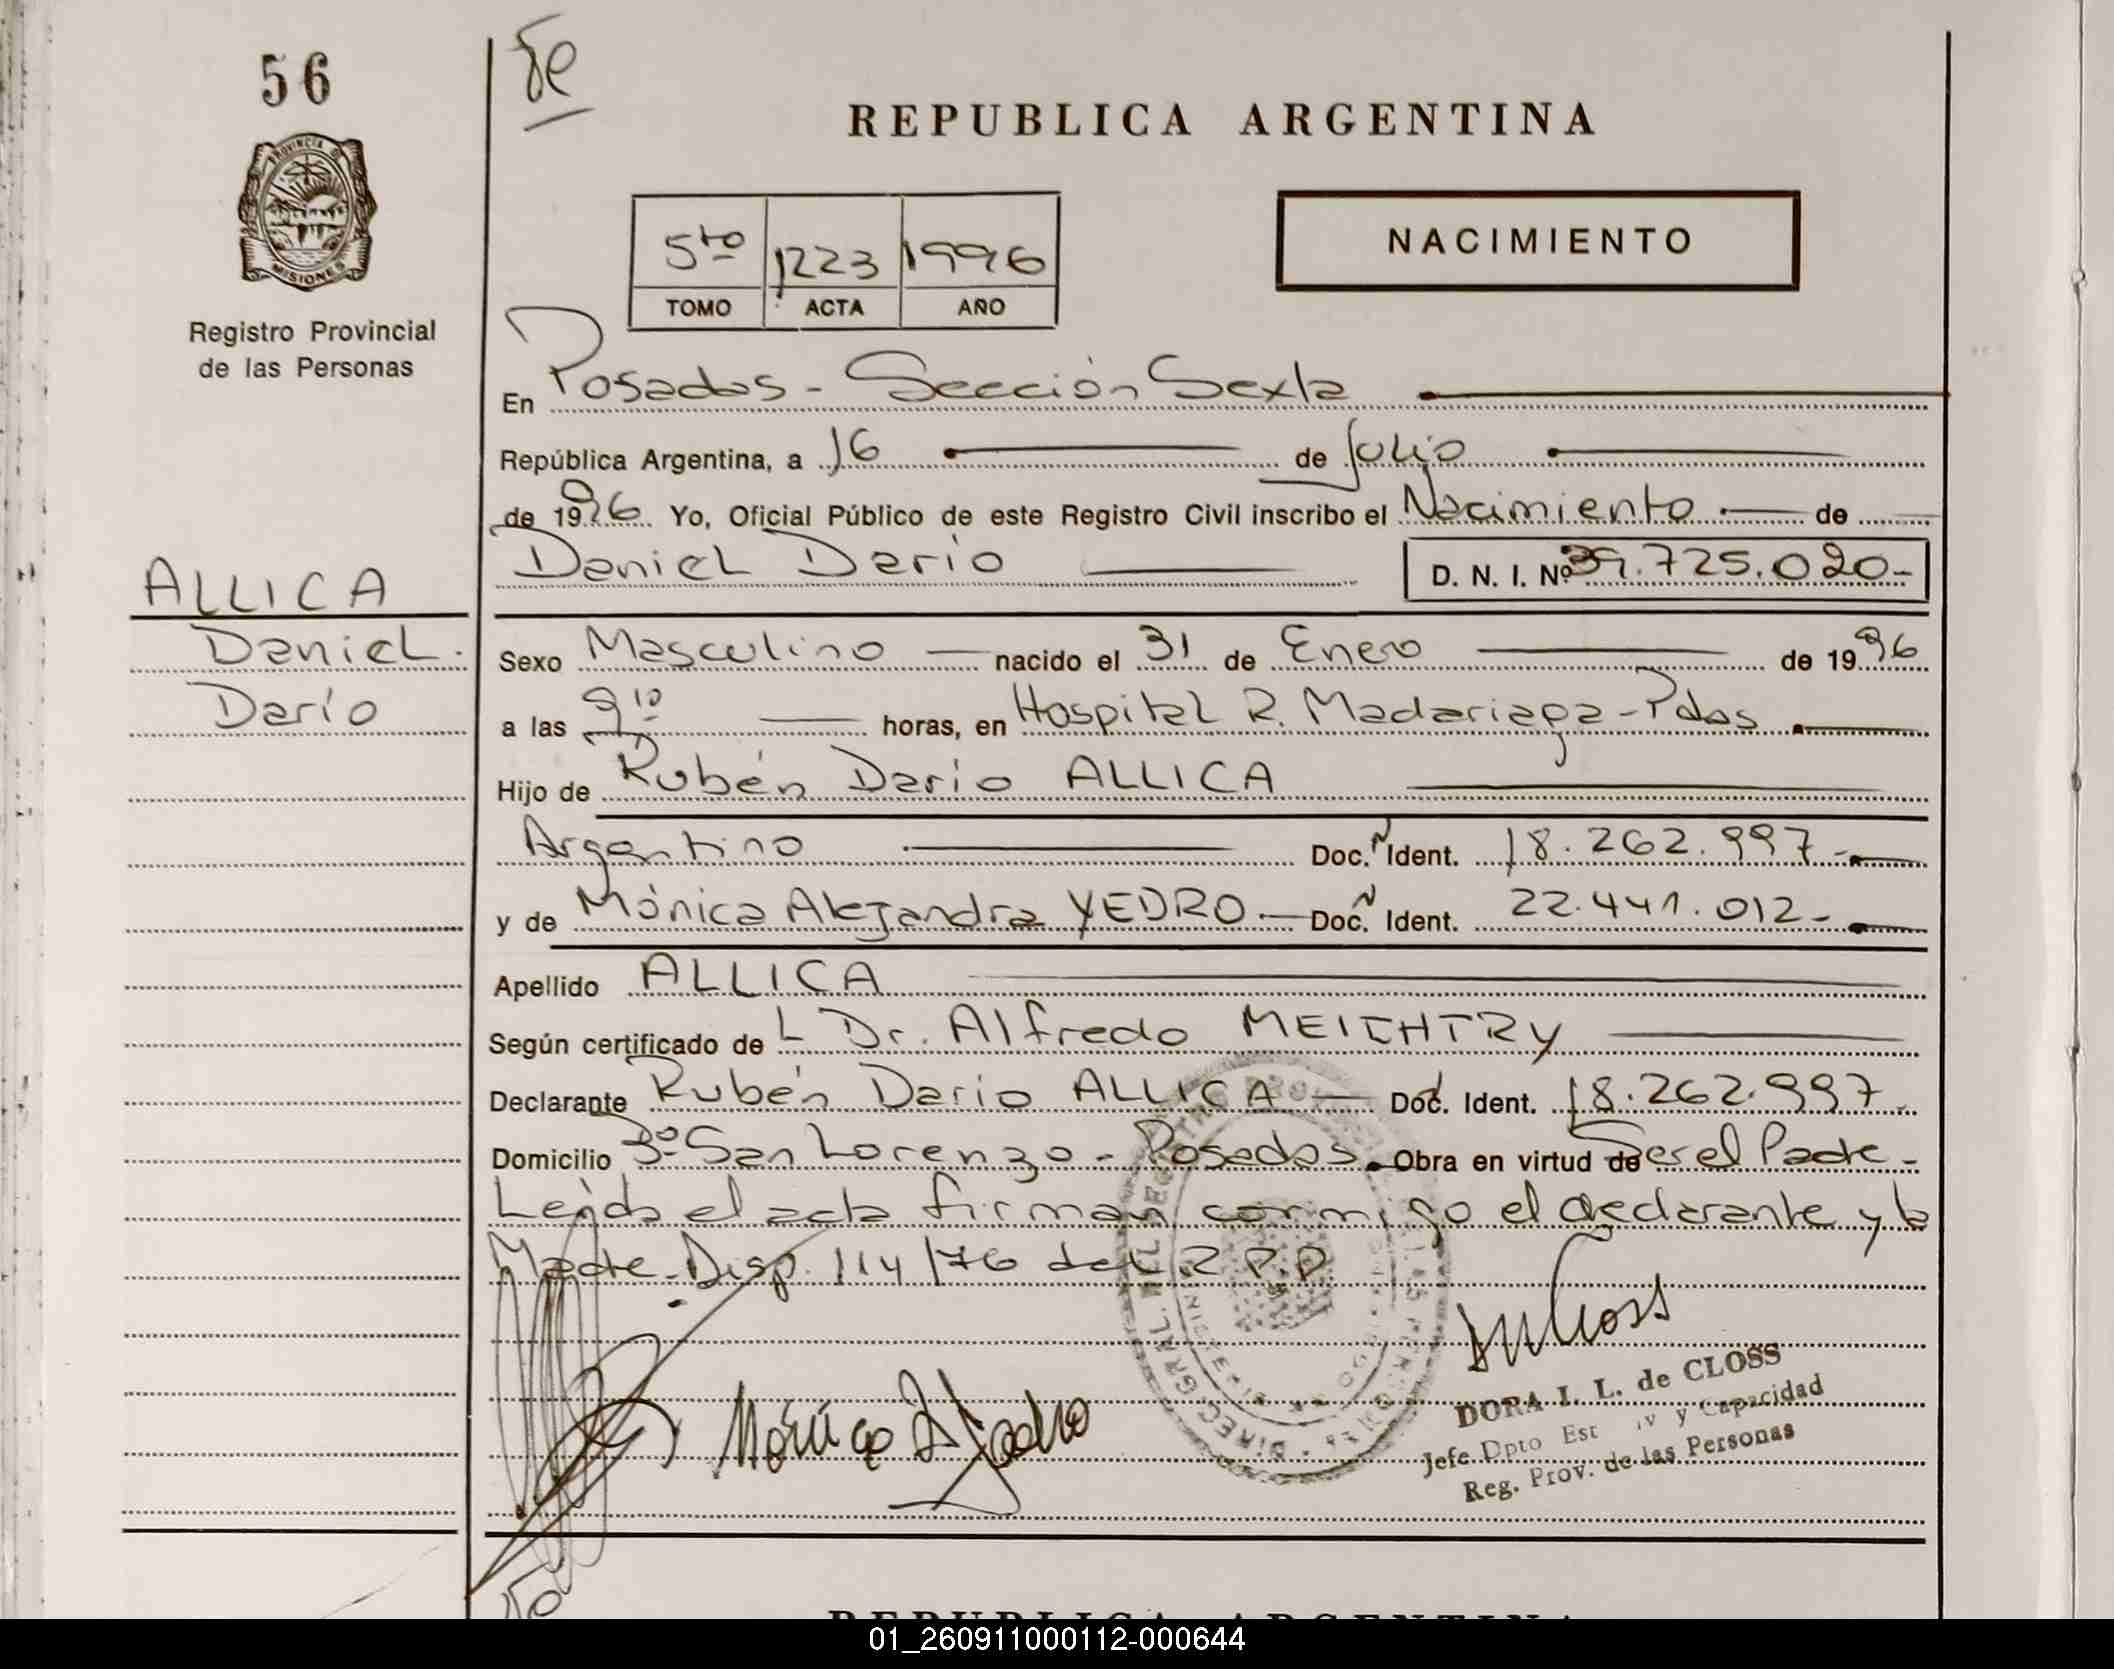 56
REPUBLICA ARGENTINA
PROVINCIA DE
MISIONES
Registro Provincial
de las Personas
5to 1223 1996
TOMO ACTA AÑO
NACIMIENTO
En Posadas - Sección Sexta
República Argentina, a 16 de Julio
de 1996 Yo, Oficial Público de este Registro Civil inscribo el Nacimiento de
Daniel Dario D. N. I. Nº 39.725.020-
ALLICA
Daniel.
Darío
Sexo Masculino nacido el 31 de Enero de 1996
a las 9 10 horas, en Hospital R. Madariaga - Pdas
Hijo de Rubén Dario ALLICA
Argentino Doc. N Ident. 18.262.997-
y de Mónica Alejandra YEDRO.- Doc. N Ident. 22.441.012-
Apellido ALLICA
Según certificado de L Dr. Alfredo MEICHTRY
Declarante Rubén Dario ALLICA - Doc. Ident. 18.262.997.
Domicilio Bº San Lorenzo - Posadas. Obra en virtud de Ser el Padre -
Leída el acta firman conmigo el declarante y la
Madre. Disp. 114/76 del R.P.P
DORA I. L. de CLOSS
Jefe Dpto Est y Capacidad
Reg. Prov. de las Personas
REPUBLICA ARGENTINA
01_260911000112-000644